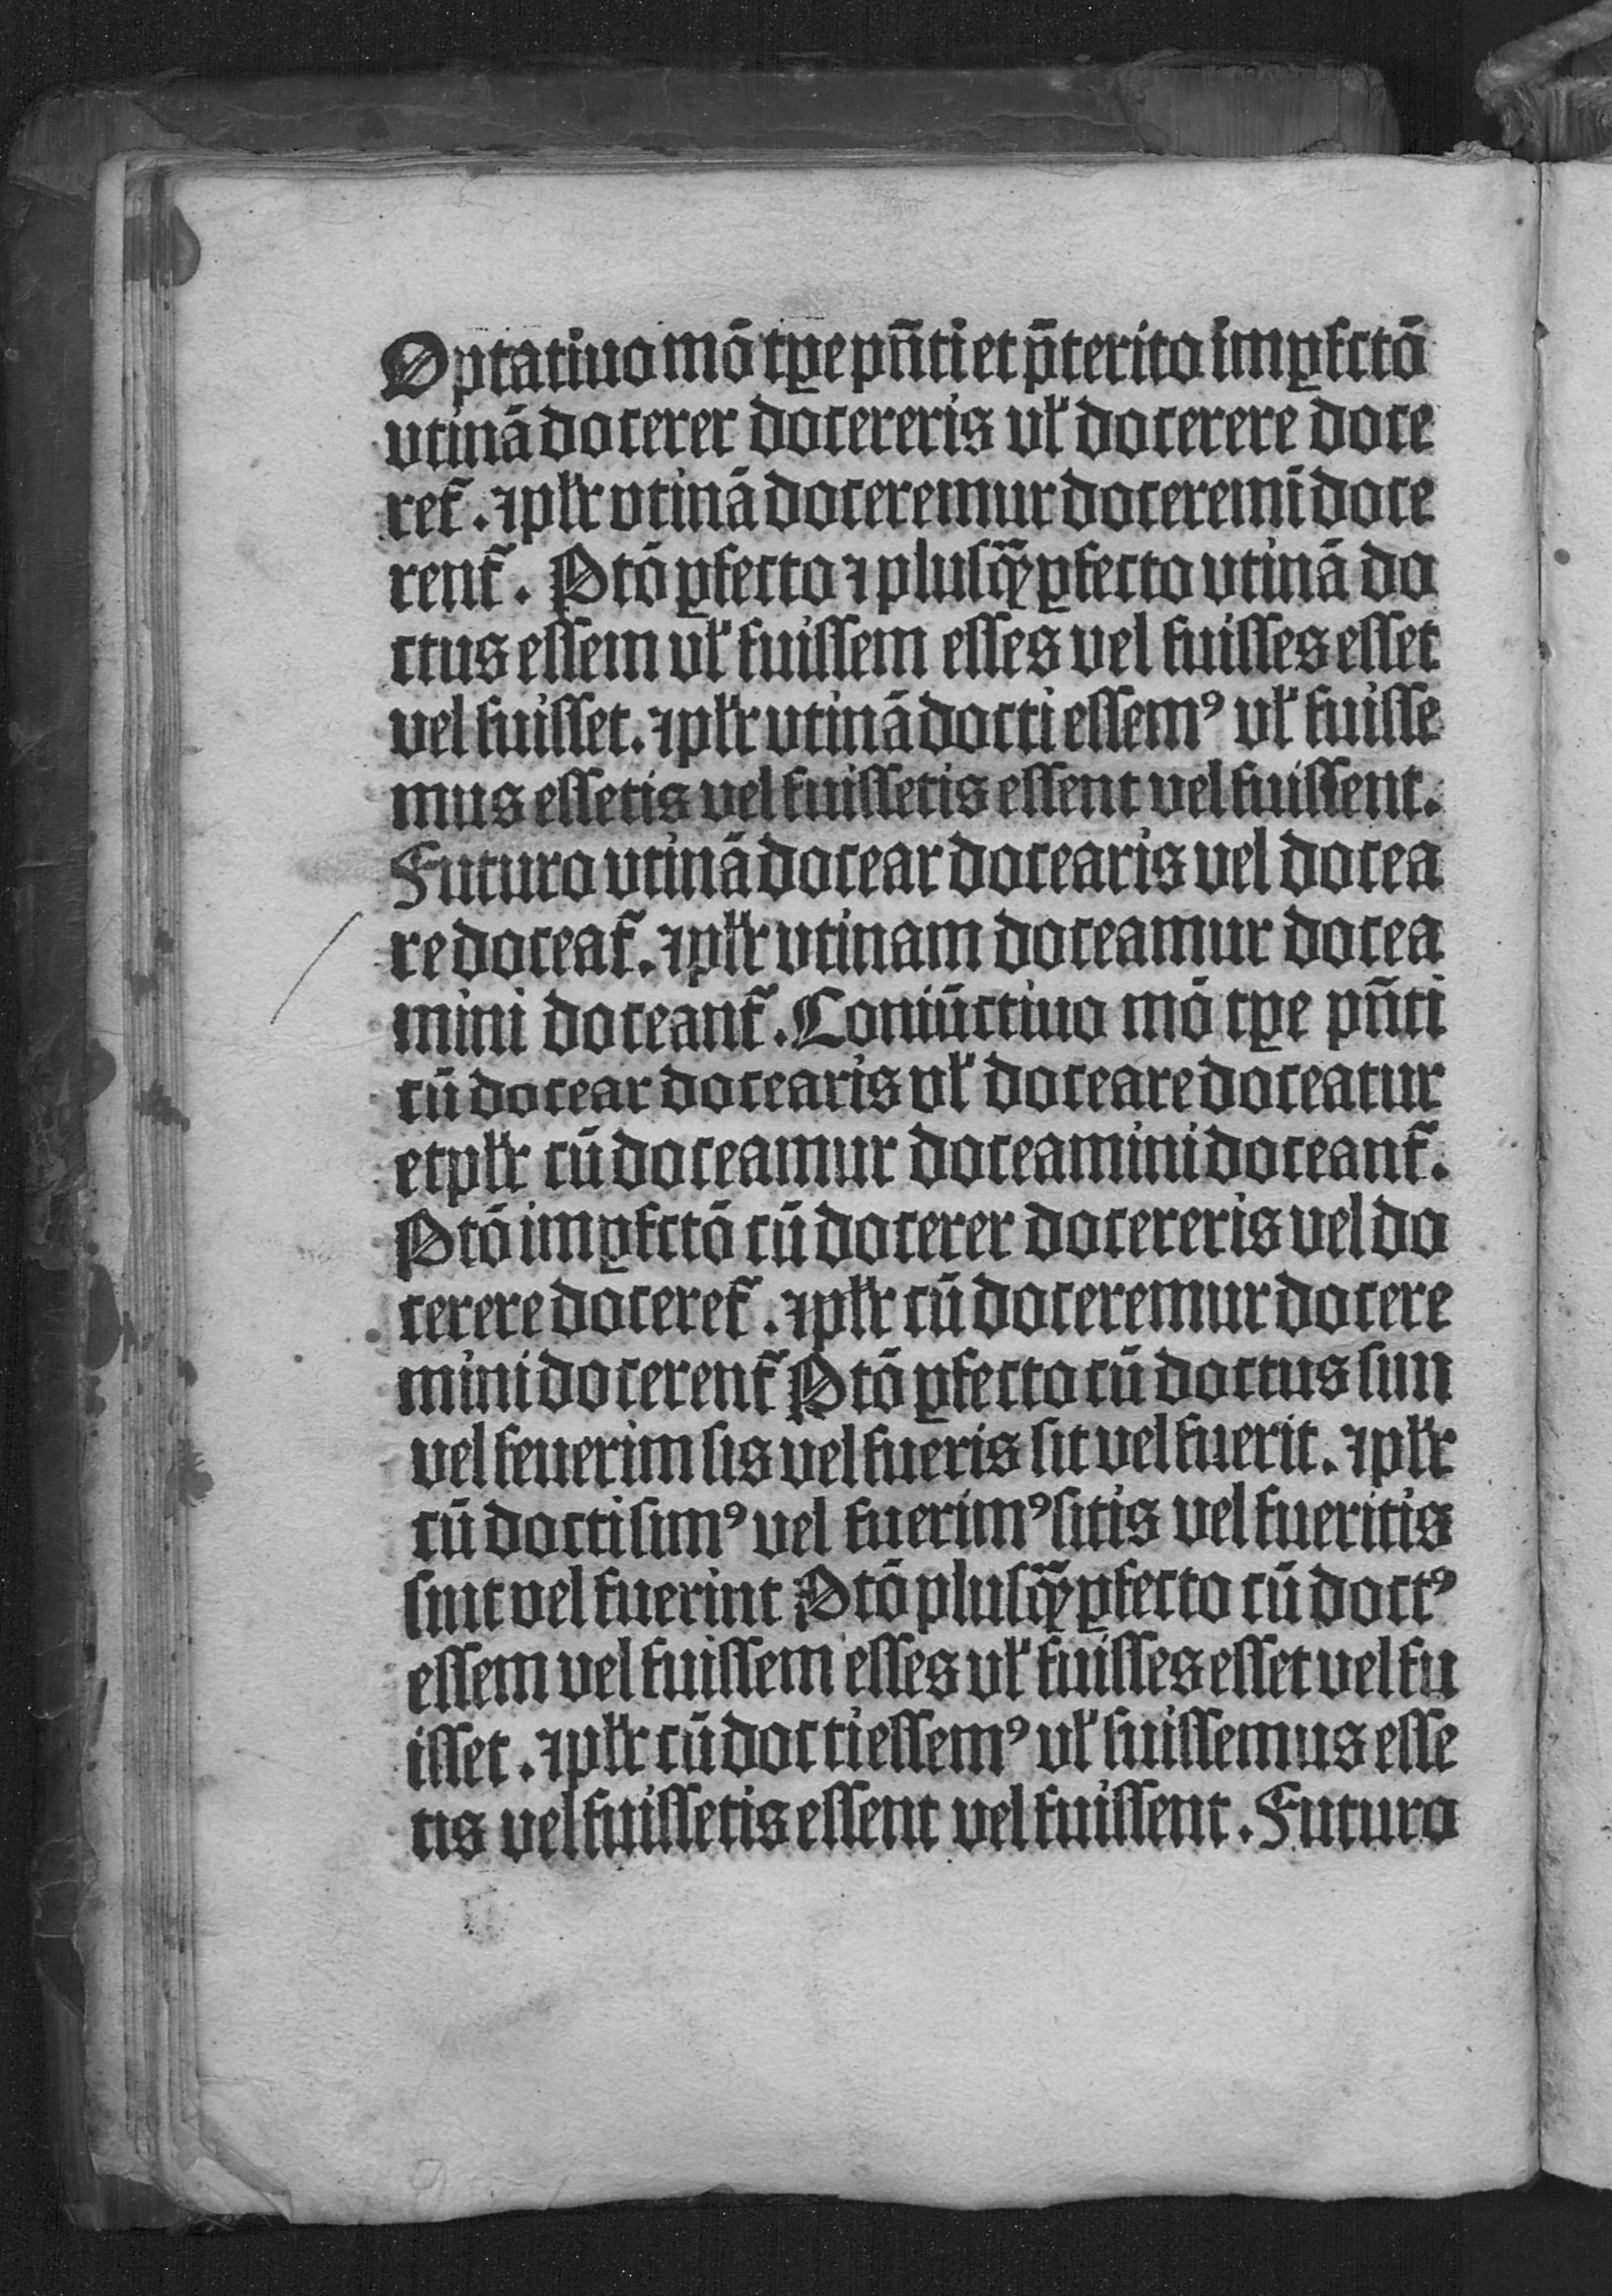 Optatiuo mō tꝑe pn̄ti et p̄terito imꝑfctō
vtinā docerer docereris vł docerere doce
ret᷑. ⁊ płr vtinā doceremur doceremī doce
rent᷑. Ptō ꝑfecto ⁊ plusqꝫ̄ꝑfecto vtinā do
ctus essem vł fuissem esses vel fuisses esset
vel fuisset. ⁊ płr vtinā docti essemꝰ vł fuisse
mus essetis vel fuissetis essent vel fuissent.
Futuro vtinā docear docearis vel docea
re doceat᷑. ⁊ płr vtinam doceamur docea
mini doceant᷑. Coniūctiuo mō tꝑe pn̄ti
cū docear docearis vł doceare doceatur
et płr cū doceamur doceamini doceant᷑.
Ptō imꝑfctō cū docerer docereris vel do
cerere doceret᷑. ⁊ płr cū doceremur docere
mini docerent᷑ Ptō ꝑfecto cū doctus sim
vel feuerim sis vel fueris sit vel fuerit. ⁊ płr
cū docti simꝰ vel fuerimꝰ sitis vel fueritis
sint vel fuerint Ptō plusqꝫ̄ꝑfecto cū doctꝰ
essem vel fuissem esses vł fuisses esset vel fu
isset. ⁊ płr cū docti essemꝰ vł fuissemus esse
tis vel fuissetis essent vel fuissent. Futuro